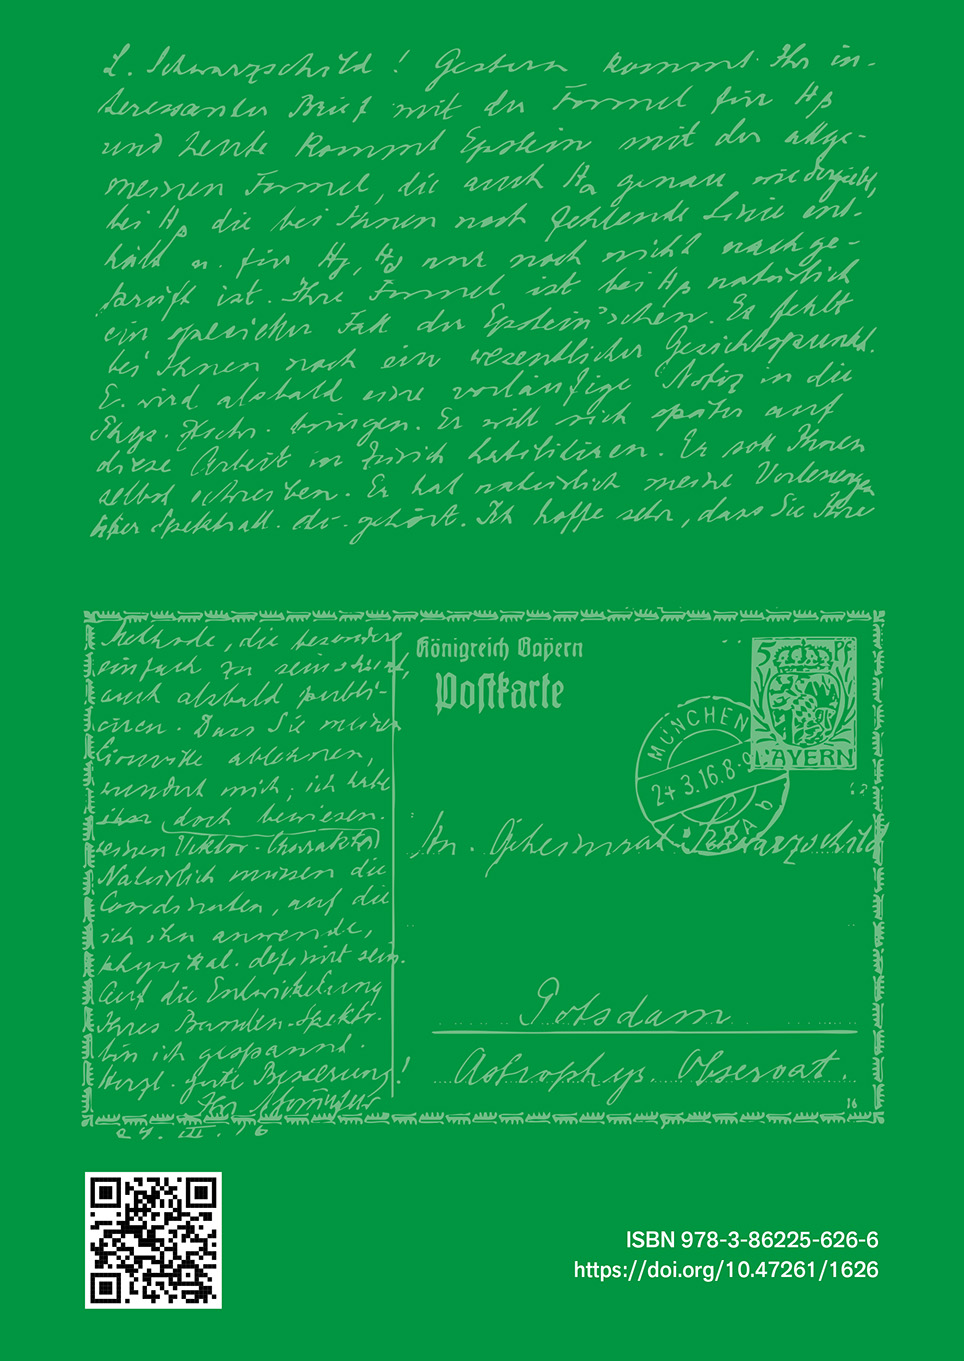 L. Schwarzschild! Gestern kommt Ihr in-
teressanter Brief mit der Formel für Hβ
und heute kommt Epstein mit der allge-
meinen Formel, die auch Hα genau wiedergiebt,
bei Hβ die bei Ihnen noch fehlende Linie ent-
hält u. für Hγ, Hδ nur noch nicht nachge-
prüft ist. Ihre Formel ist bei Hβ natürlich
ein specieller Fall der Epstein'schen. Es fehlt
bei Ihnen noch ein wesentlicher Gesichtspunkt.
E. wird alsbald eine vorläufige Notiz in die
Phys. Ztschr. bringen. Er will sich später auf
diese Arbeit in Zürich habilitiren. Er soll Ihnen
selbst schreiben. Er hat natürlich meine Vorlesung
über Spektrall. etc. gehört. Ich hoffe sehr, dass Sie Ihre
Methode, die besonders
einfach zu sein scheint,
auch alsbald publi-
ciren. Dass Sie meinen
ablehnen,
wundert mich; ich habe
doch bewiesen.
seinen Vektor-Charakter
Natürlich müssen die
Coordinaten, auf die
ich ihn anwende,
physikal. definirt sein.
Auf die Entwickelung
Ihres Banden-Spektr.
bin ich gespannt.
Herzl. gute Besserung!
Ihr A. Sommerfeld
24. III. 16
Königreich Bayern
Postkarte
5 Pf
BAYERN
MÜNCHEN
24.3.16.8-9
Hn. Geheimrat Schwarzschild
Potsdam
Astrophys. Observat.
16
ISBN 978-3-86225-626-6
https://doi.org/10.47261/1626